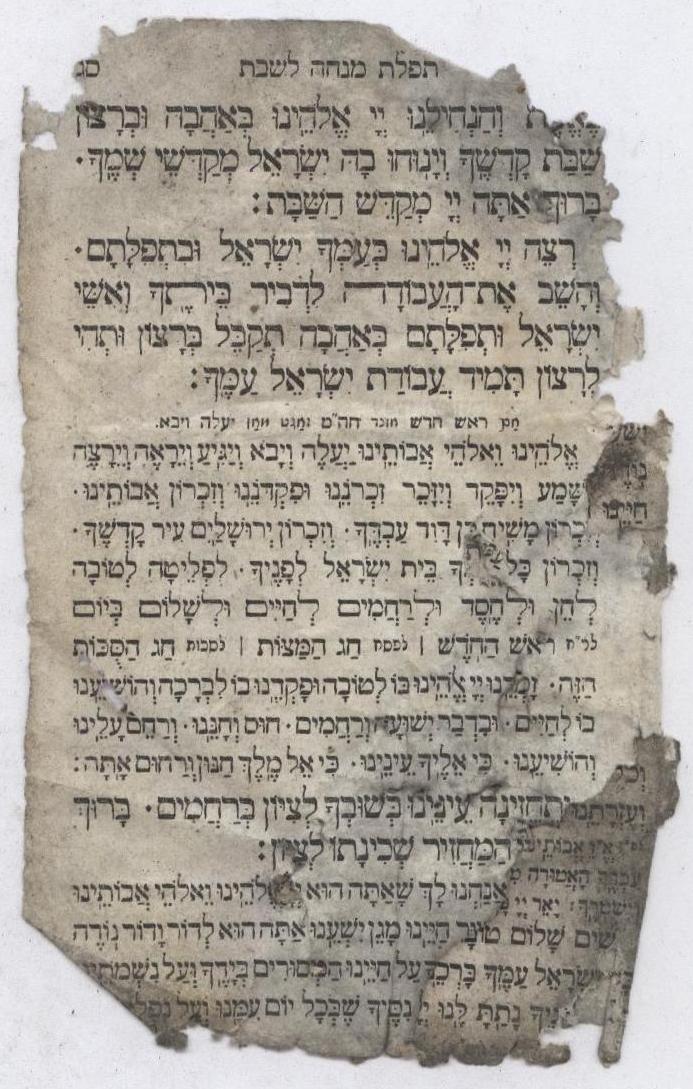 תפלת מנחה לשבת סג
וְהַנְחִילֵנוּ יְיָ אֱלֹהֵינוּ בְּאַהֲבָה וּבְרָצוֹן
שַׁבַּת קָדְשֶׁךָ וְיָנוּחוּ בָהּ יִשְׂרָאֵל מְקַדְּשֵׁי שְׁמֶךָ.
בָּרוּךְ אַתָּה יְיָ מְקַדֵּשׁ הַשַּׁבָּת:
רְצֵה יְיָ אֱלֹהֵינוּ בְּעַמְּךָ יִשְׂרָאֵל וּבִתְפִלָּתָם.
וְהָשֵׁב אֶת־הָעֲבוֹדָה לִדְבִיר בֵּיתֶךָ וְאִשֵּׁי
יִשְׂרָאֵל וּתְפִלָּתָם בְּאַהֲבָה תְקַבֵּל בְּרָצוֹן וּתְהִי
לְרָצוֹן תָּמִיד עֲבוֹדַת יִשְׂרָאֵל עַמֶּךָ:
ראש חדש יעלה ויבא.
אֱלֹהֵינוּ וֵאלֹהֵי אֲבוֹתֵינוּ יַעֲלֶה וְיָבֹא וְיַגִּיעַ וְיֵרָאֶה וְיֵרָצֶה
וְיִפָּקֵד וְיִזָּכֵר זִכְרוֹנֵנוּ וּפִקְדוֹנֵנוּ וְזִכְרוֹן אֲבוֹתֵינוּ.
מָשִׁיחַ בֶּן דָּוִד עַבְדֶּךָ. וְזִכְרוֹן יְרוּשָׁלַיִם עִיר קָדְשֶׁךָ.
וְזִכְרוֹן כָּל בֵּית יִשְׂרָאֵל לְפָנֶיךָ. לִפְלֵיטָה לְטוֹבָה
לְחֵן וּלְחֶסֶד וּלְרַחֲמִים לְחַיִּים וּלְשָׁלוֹם בְּיוֹם
לר״ח רֹאשׁ הַחֹדֶשׁ | לפסח חַג הַמַּצּוֹת | לסכות חַג הַסֻּכּוֹת
הַזֶּה. זָכְרֵנוּ יְיָ אֱלֹהֵינוּ בּוֹ לְטוֹבָה וּפָקְדֵנוּ בוֹ לִבְרָכָה וְהוֹשִׁיעֵנוּ
בוֹ לְחַיִּים. וּבִדְבַר יְשׁוּעָה וְרַחֲמִים. חוּס וְחָנֵּנוּ. וְרַחֵם עָלֵינוּ
וְהוֹשִׁיעֵנוּ. כִּי אֵלֶיךָ עֵינֵינוּ. כִּי אֵל מֶלֶךְ חַנּוּן וְרַחוּם אָתָּה:
וְתֶחֱזֶינָה עֵינֵינוּ בְּשׁוּבְךָ לְצִיּוֹן בְּרַחֲמִים. בָּרוּךְ
הַמַּחֲזִיר שְׁכִינָתוֹ לְצִיּוֹן:
אֲנַחְנוּ לָךְ שָׁאַתָּה הוּא אֱלֹהֵינוּ וֵאלֹהֵי אֲבוֹתֵינוּ
שים שָׁלוֹם חַיֵּינוּ מָגֵן יִשְׁעֵנוּ אַתָּה הוּא לְדוֹר וָדוֹר נוֹדֶה
יִשְׂרָאֵל עַמֶּךָ בָּרְכֵנוּ עַל חַיֵּינוּ הַמְּסוּרִים בְּיָדֶךָ וְעַל
נָתַתָּ לָּנוּ יְיָ נִסֶּיךָ שֶׁבְּכָל יוֹם עִמָּנוּ וְעַל